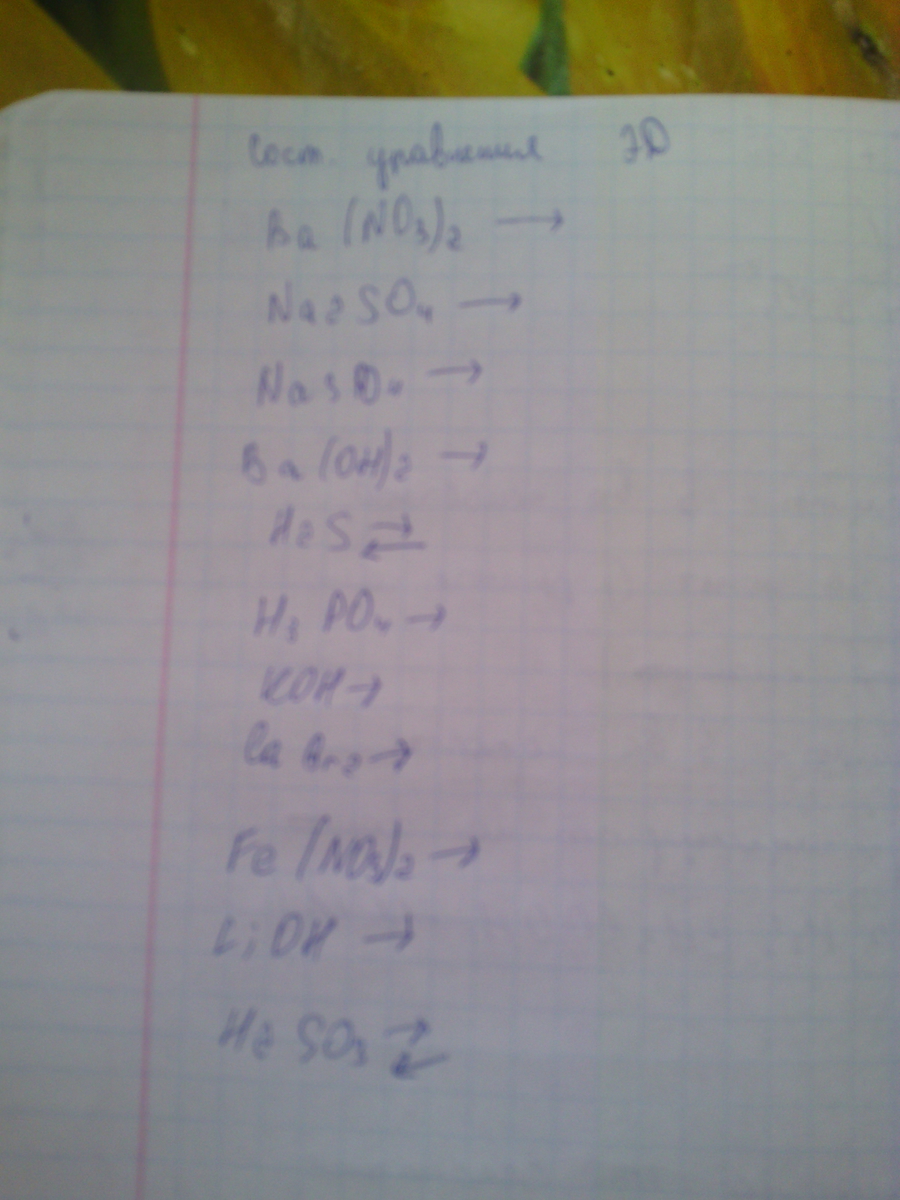 Сост. уравнения ЭД
Ba (NO₃)₂ →
Na₂SO₄ →
Na₃PO₄ →
Ba(OH)₂ →
H₂S ⇄
H₃PO₄ →
KOH →
CaBr₂ →
Fe(NO₃)₂ →
LiOH →
H₂SO₃ ⇄